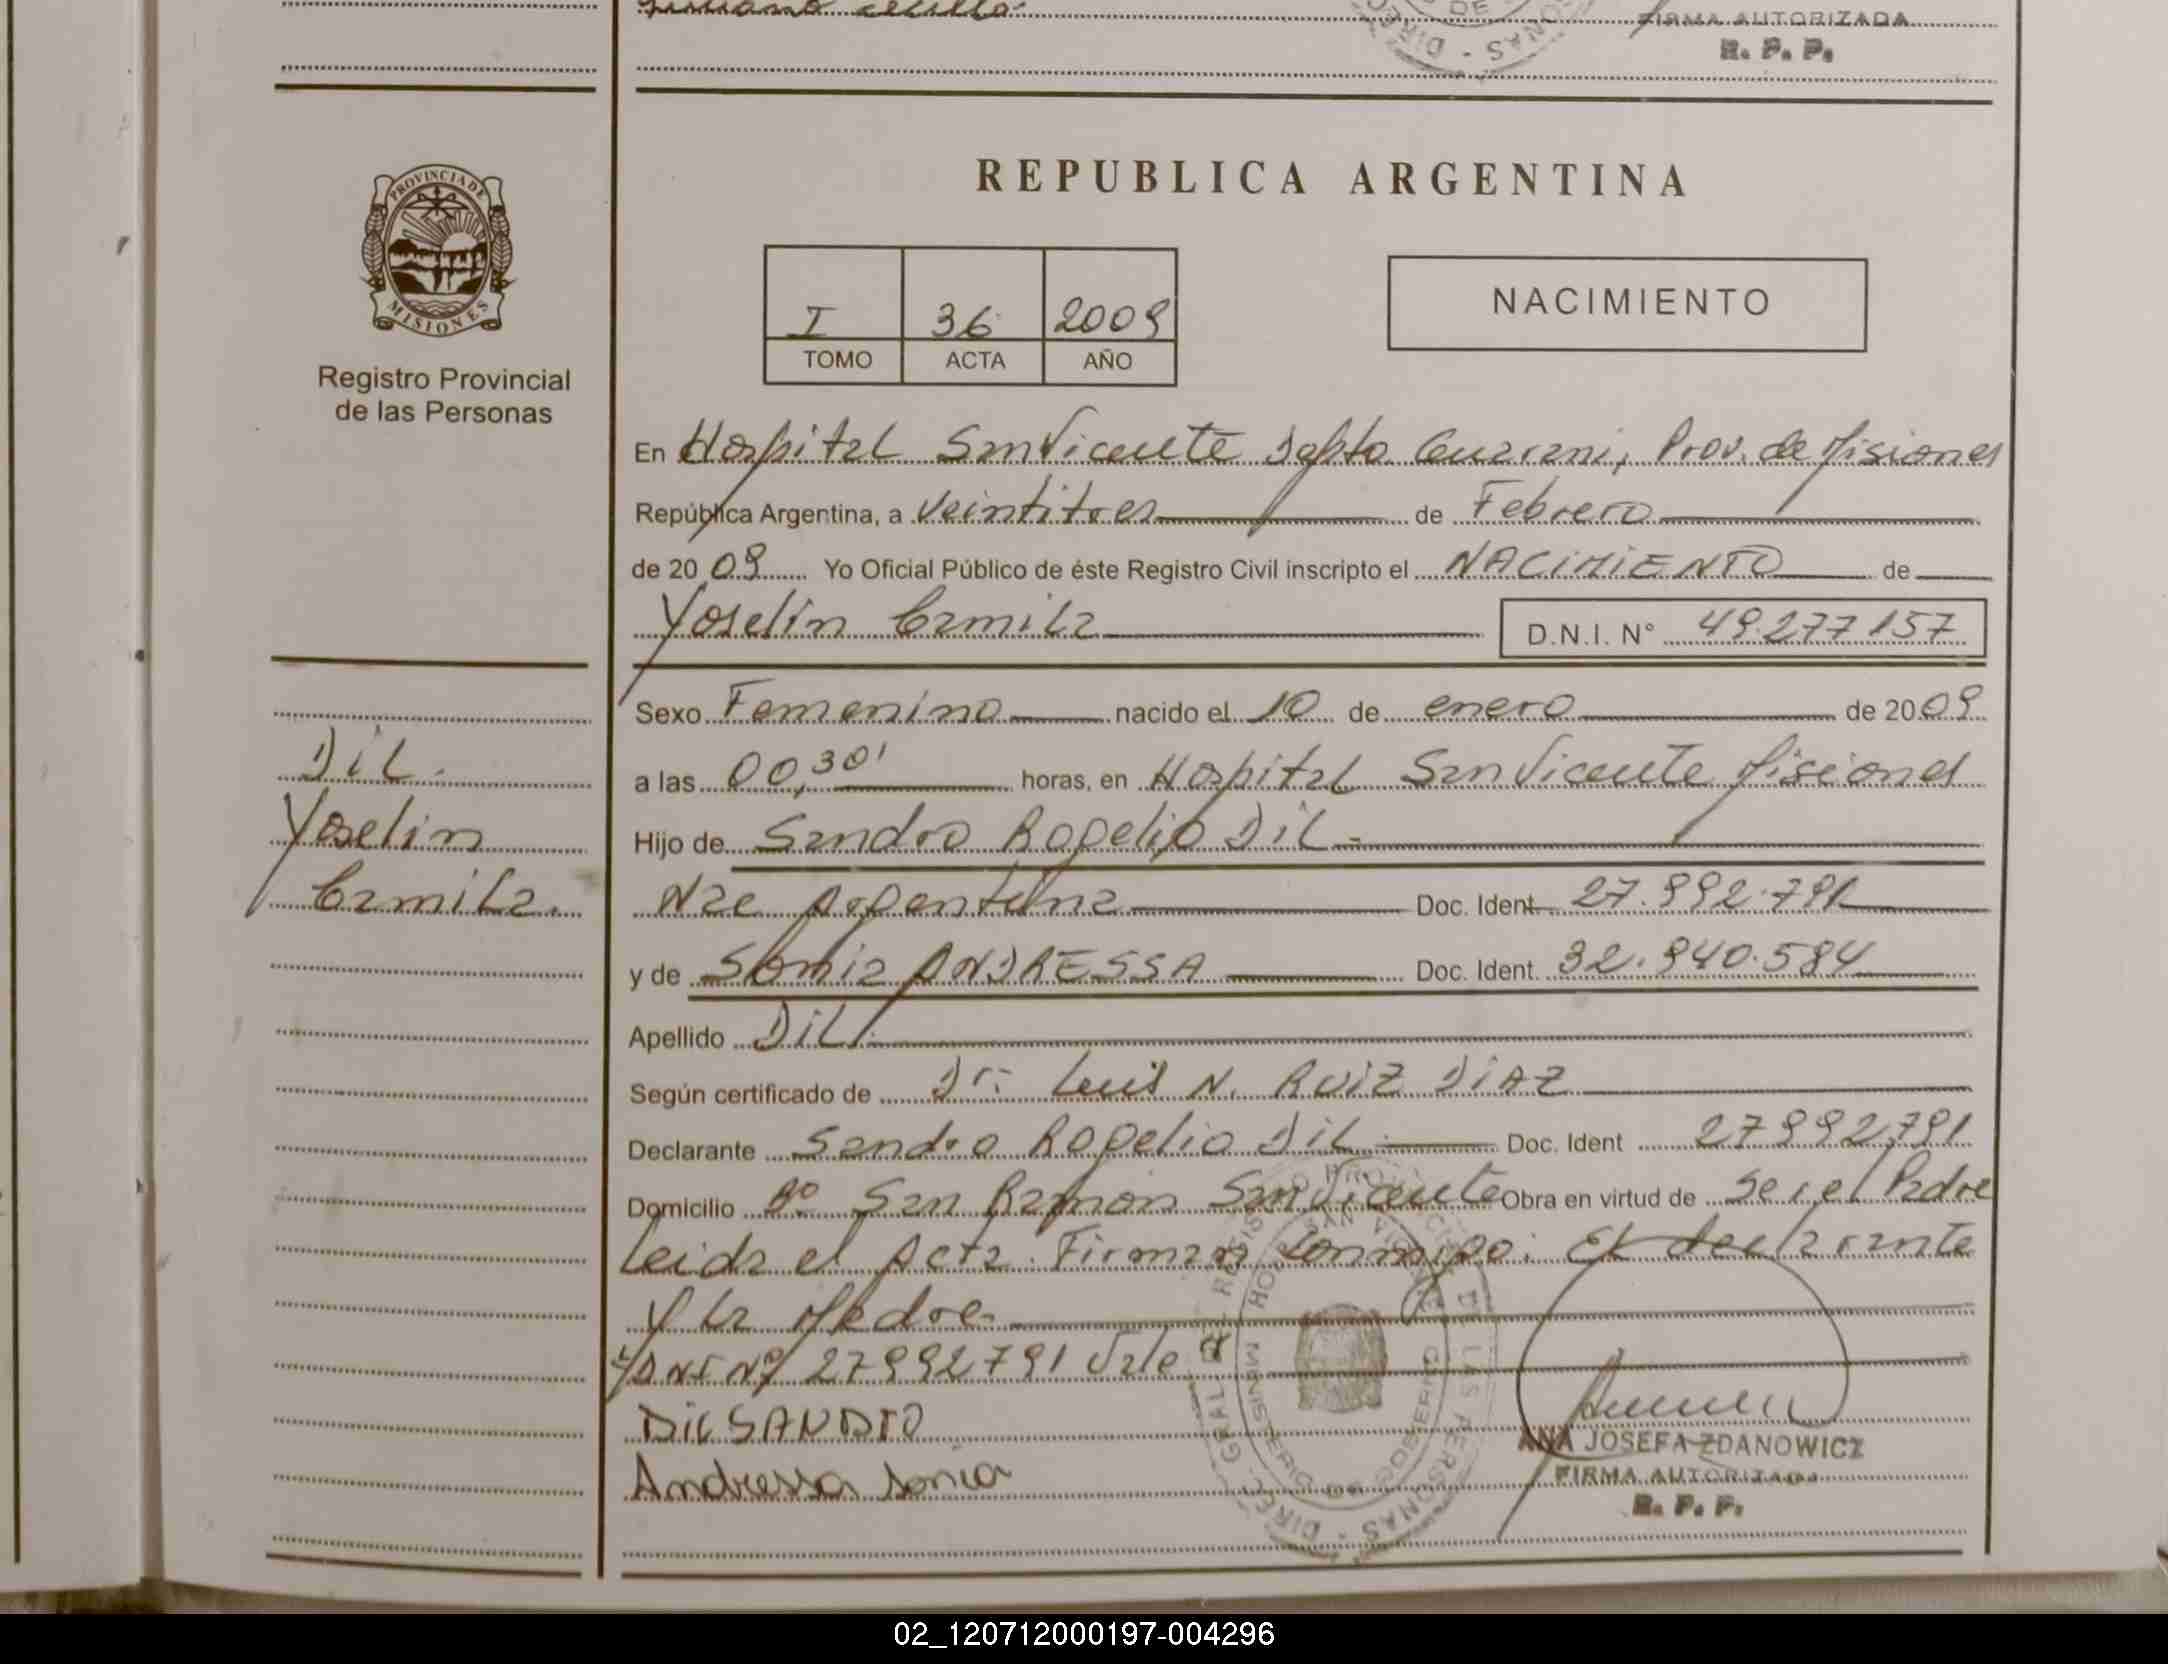 FIRMA AUTORIZADA
R. P. P.
PROVINCIA DE
MISIONES
Registro Provincial
de las Personas
REPUBLICA ARGENTINA
I 36 2009
TOMO ACTA AÑO
NACIMIENTO
En Hospital San Vicente Dpto Guarani, Prov. de Misiones
República Argentina, a Veintitres de Febrero
de 2009 Yo Oficial Público de éste Registro Civil inscripto el NACIMIENTO de
Yoselin Camila D.N.I. N° 49.277157
Sexo Femenino nacido el 10 de enero de 2009
a las 00,30' horas, en Hospital San Vicente Misiones
Hijo de Sandro Rogelio Dil.-
Nac Argentina Doc. Ident 27.992.791
y de Sonia ANDRESSA Doc. Ident. 32.940.584
Apellido DiL.
Según certificado de Dr. Luis N. RUIZ DIAZ
Declarante Sandro Rogelio Dil Doc. Ident 27992791
Domicilio B° San Ramon San Vicente Obra en virtud de Ser el Padre
Leida el Acta. Firman Conmigo: El declarante
Y la Madre
DNI N° 27992791 Vale
DiL SANDRO
Andressa Sonia
Dil.
Yoselin
Camila.
ANA JOSEFA ZDANOWICZ
FIRMA AUTORIZADA
R. P. P.
02_120712000197-004296